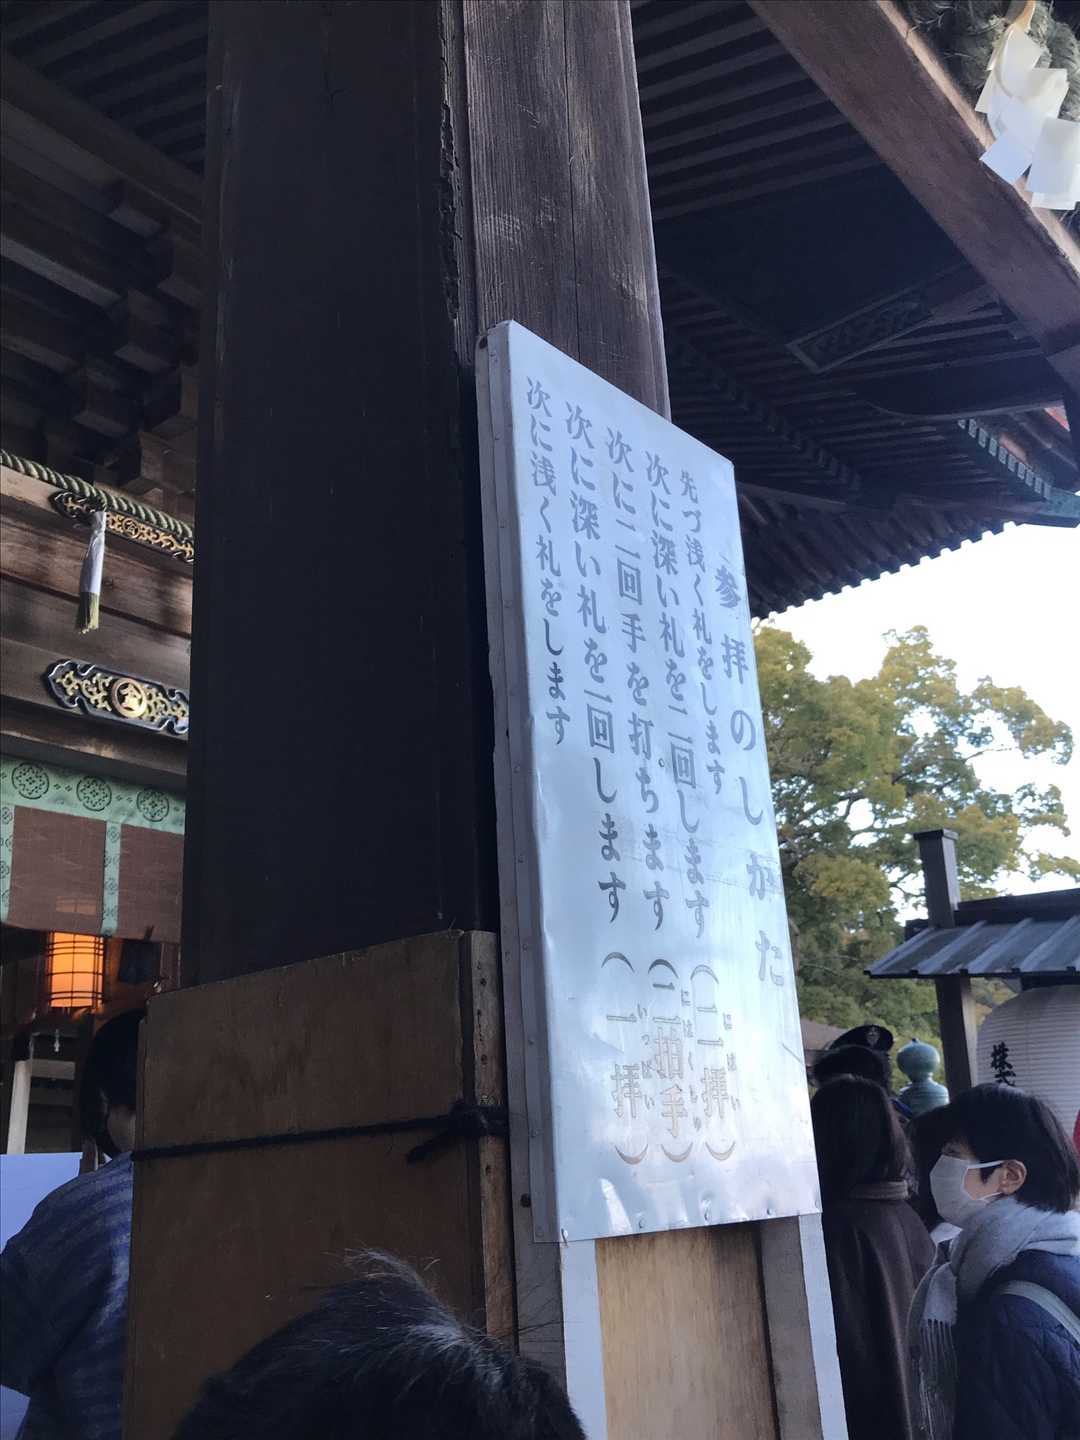 参拝のしかた
先づ浅く礼をします
次に深い礼を二回します（二拝）
にはい
次に二回手を打ちます（二拍手）
にはくしゅ
次に深い礼を一回します（一拝）
いっぱい
次に浅く礼をします
株式